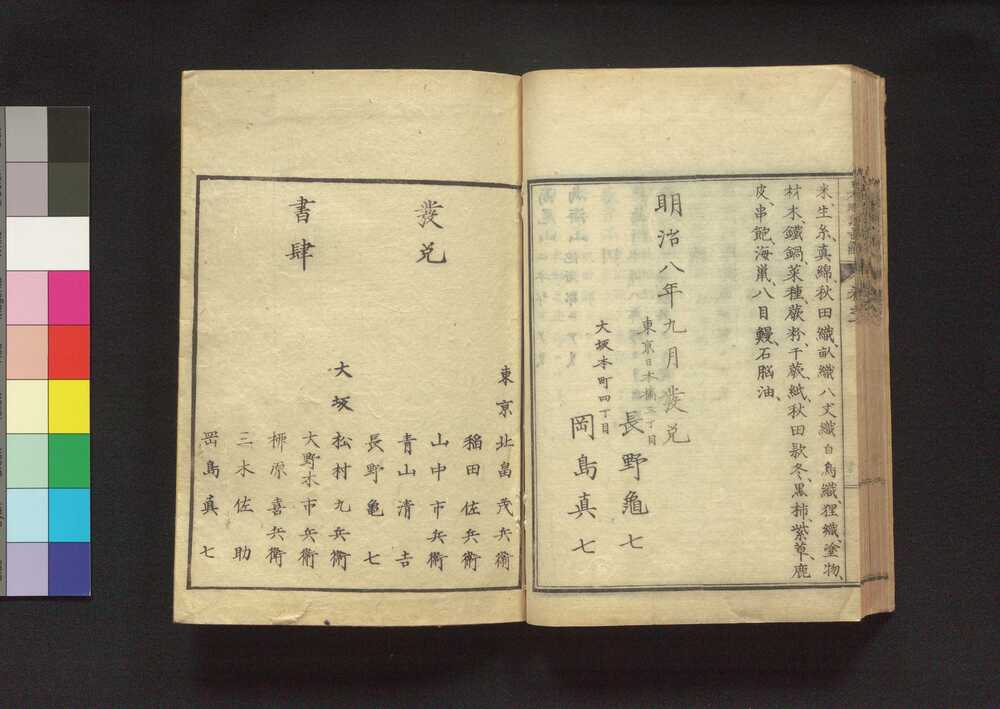 米、生糸、真綿、秋田織、畝織、八丈織、白鳥織、狸織、塗物、
材木、鐵、鍋、菜種、蕨粉、干蕨、紙、秋田款冬、黒柿、紫草、鹿
皮、串鮑、海鼠、八目鰻、石脳油、
明治八年九月發兌
東京日本橋二丁目
長野龜七
大坂本町四丁目
岡島真七
發兌
書肆
東京
北畠茂兵衛
稲田佐兵衛
山中市兵衛
青山清吉
長野亀七
大坂
松村九兵衛
大野木市兵衛
柳原喜兵衛
三木佐助
岡島真七